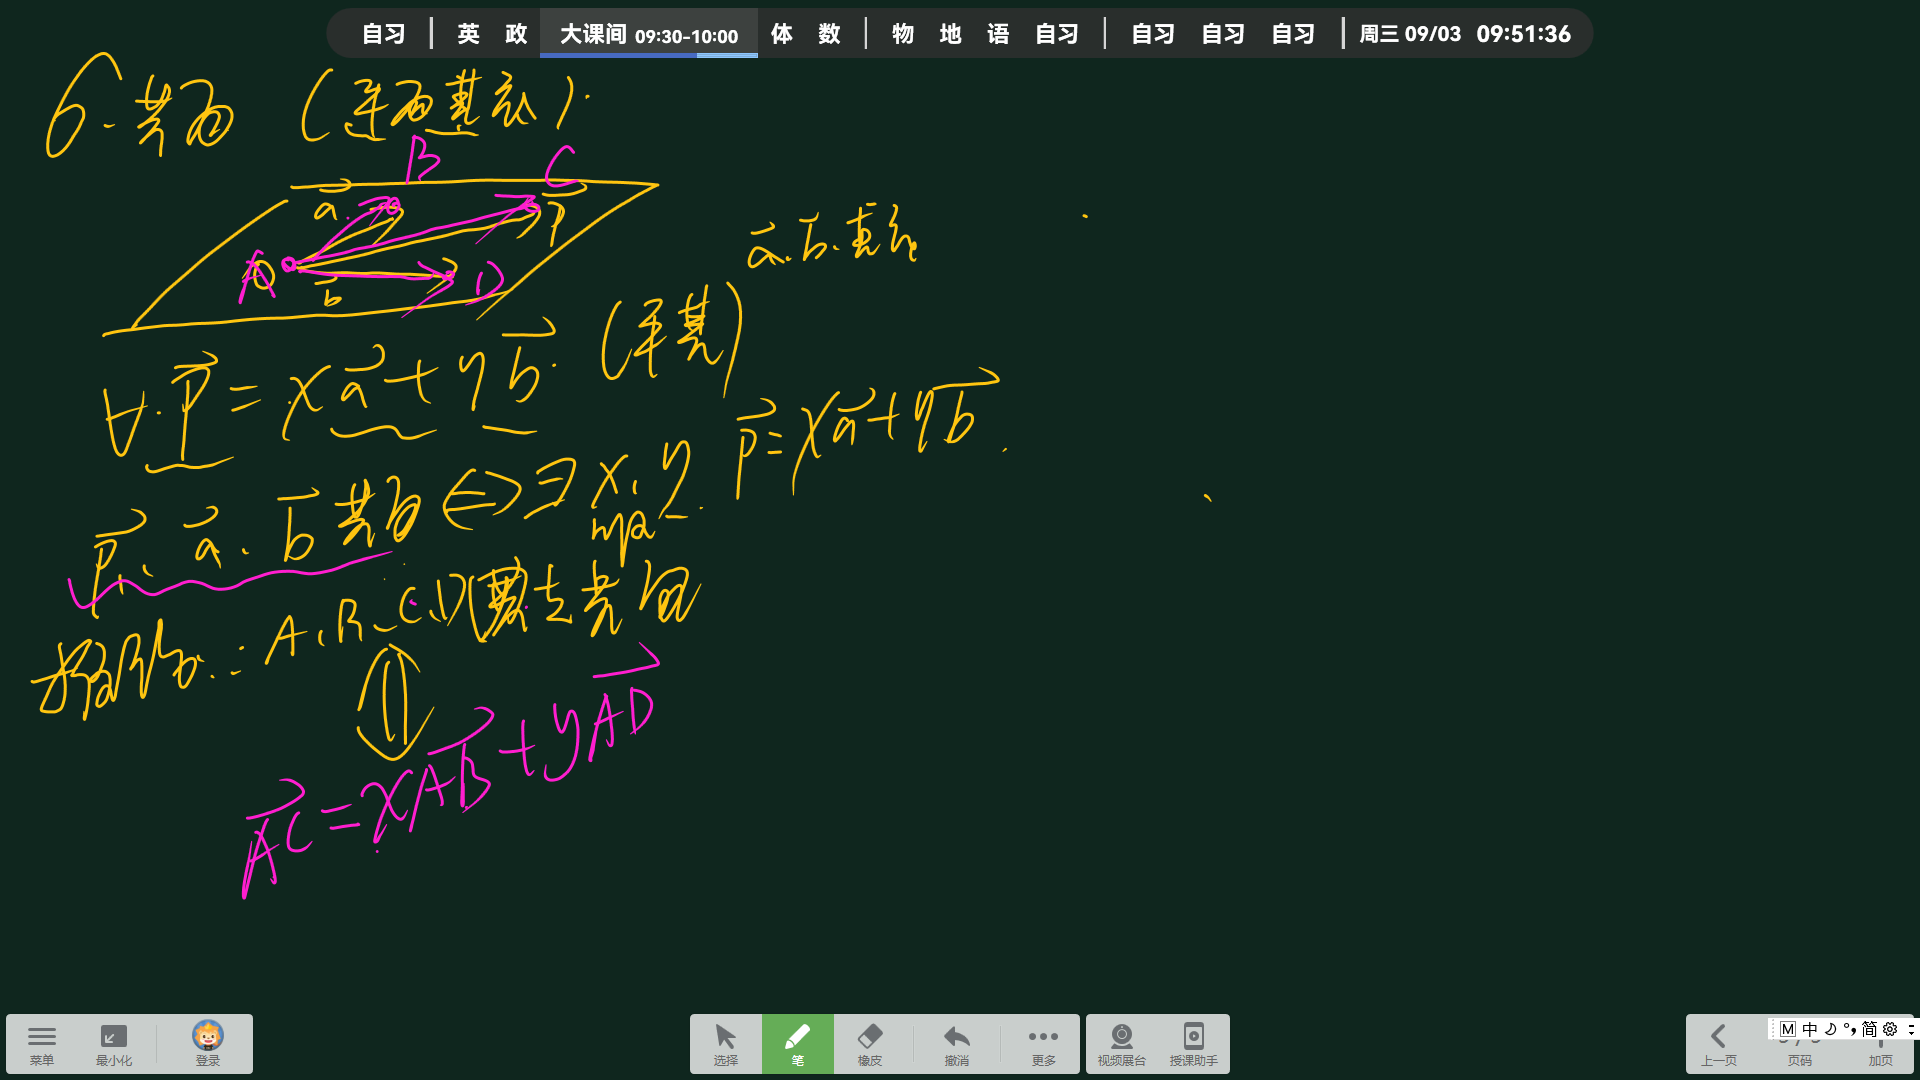 自习 | 英 政 大课间 09:30-10:00 体 数 | 物 地 语 自习 | 自习 自习 自习 | 周三 09/03 09:51:36
6. 共面 (平面基底).
B C
a P
A O b D
a. b. 基底
∀. P = xa + yb. (平基)
P、a、b 共面 <=> ∃ x, y P = xa + yb.
: A、B、C、D 共面
AC = xAB + yAD
菜单 最小化 登录 选择 笔 橡皮 撤消 更多 视频展台 授课助手 上一页 页码 加页
M 中 简